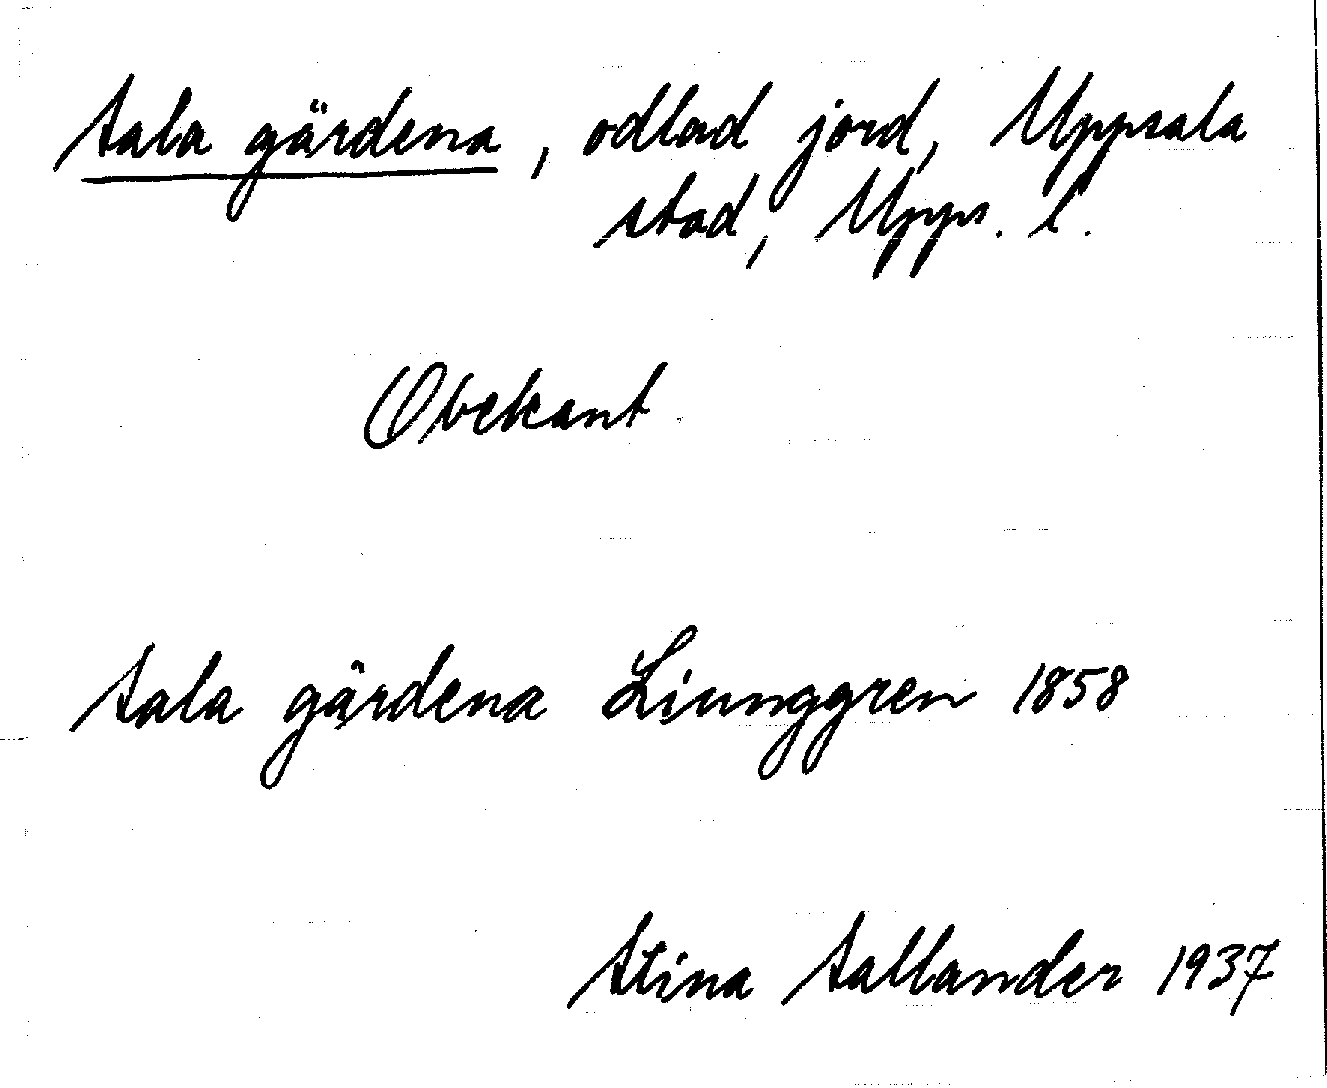 Sala gärdena, odlad jord, Uppsala
stad, Upps. l.
Obekant
Sala gärdena Liunggren 1858
Stina Sallander 1937